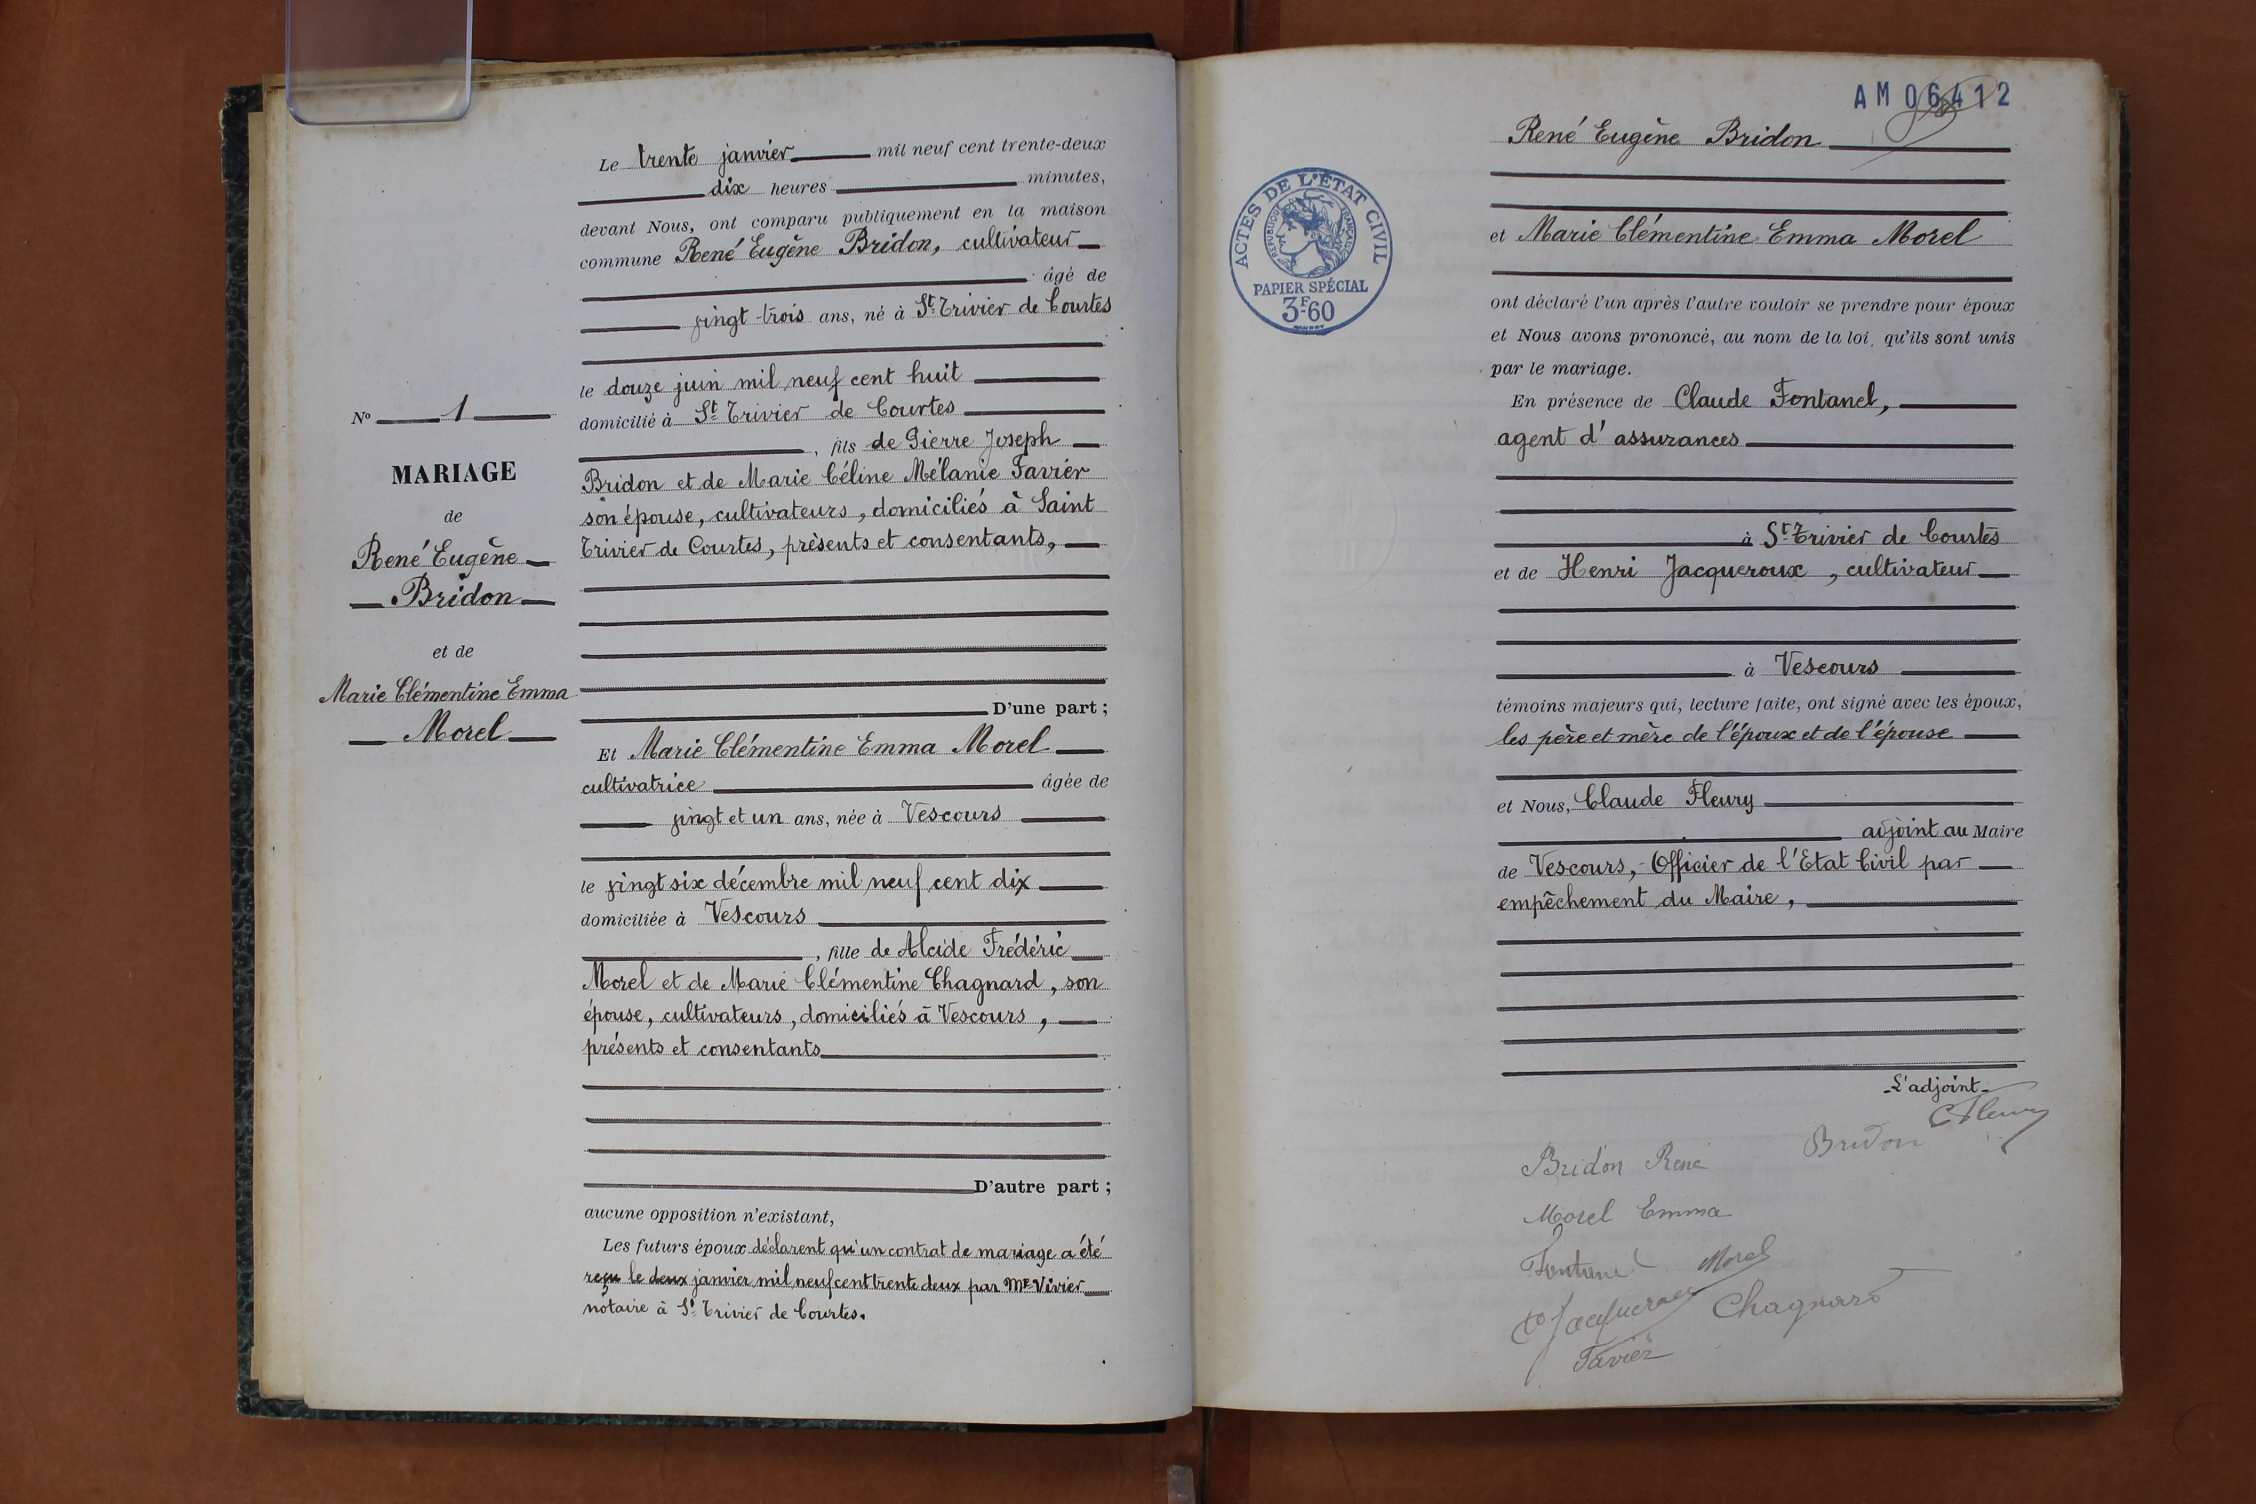 N° 1
MARIAGE
de
René Eugène
Bridon
et de
Marie Clémentine Emma
Morel
Le trente janvier mil neuf cent trente-deux
dix heures minutes,
devant Nous, ont comparu publiquement en la maison
commune René Eugène Bridon, cultivateur
âgé de
vingt-trois ans, né à St Trivier de Courtes
le douze juin mil neuf cent huit
domicilié à St Trivier de Courtes
, fils de Pierre Joseph
Bridon et de Marie Céline Mélanie Favier
son épouse, cultivateurs, domiciliés à Saint
Trivier de Courtes, présents et consentants,
D'une part ;
Et Marie Clémentine Emma Morel
cultivatrice âgée de
vingt et un ans, née à Vescours
le vingt six décembre mil neuf cent dix
domiciliée à Vescours
, fille de Alcide Frédéric
Morel et de Marie Clémentine Chagnard, son
épouse, cultivateurs, domiciliés à Vescours,
présents et consentants
D'autre part ;
aucune opposition n'existant,
Les futurs époux déclarent qu'un contrat de mariage a été
reçu le deux janvier mil neuf cent trente deux par Me Vivier
notaire à St Trivier de Courtes.
AM 06412
René Eugène Bridon
ACTES DE L'ÉTAT CIVIL
RÉPUBLIQUE FRANÇAISE
PAPIER SPÉCIAL
3F60
et Marie Clémentine Emma Morel
ont déclaré l'un après l'autre vouloir se prendre pour époux
et Nous avons prononcé, au nom de la loi, qu'ils sont unis
par le mariage.
En présence de Claude Fontanel,
agent d'assurances
à St Trivier de Courtes
et de Henri Jacqueroux, cultivateur
à Vescours
témoins majeurs qui, lecture faite, ont signé avec les époux,
les père et mère de l'époux et de l'épouse
et Nous, Claude Fleury
adjoint au Maire
de Vescours, Officier de l'Etat Civil par
empêchement du Maire,
L'adjoint
C Fleury
Bridon René Bridon
Morel Emma
Fontanel Morel
Jacqueroux Chagnard
Favier